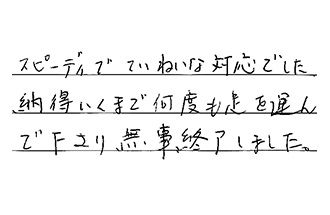 スピーディでていねいな対応でした
納得いくまで何度も足を運ん
で下さり無事終了しました。